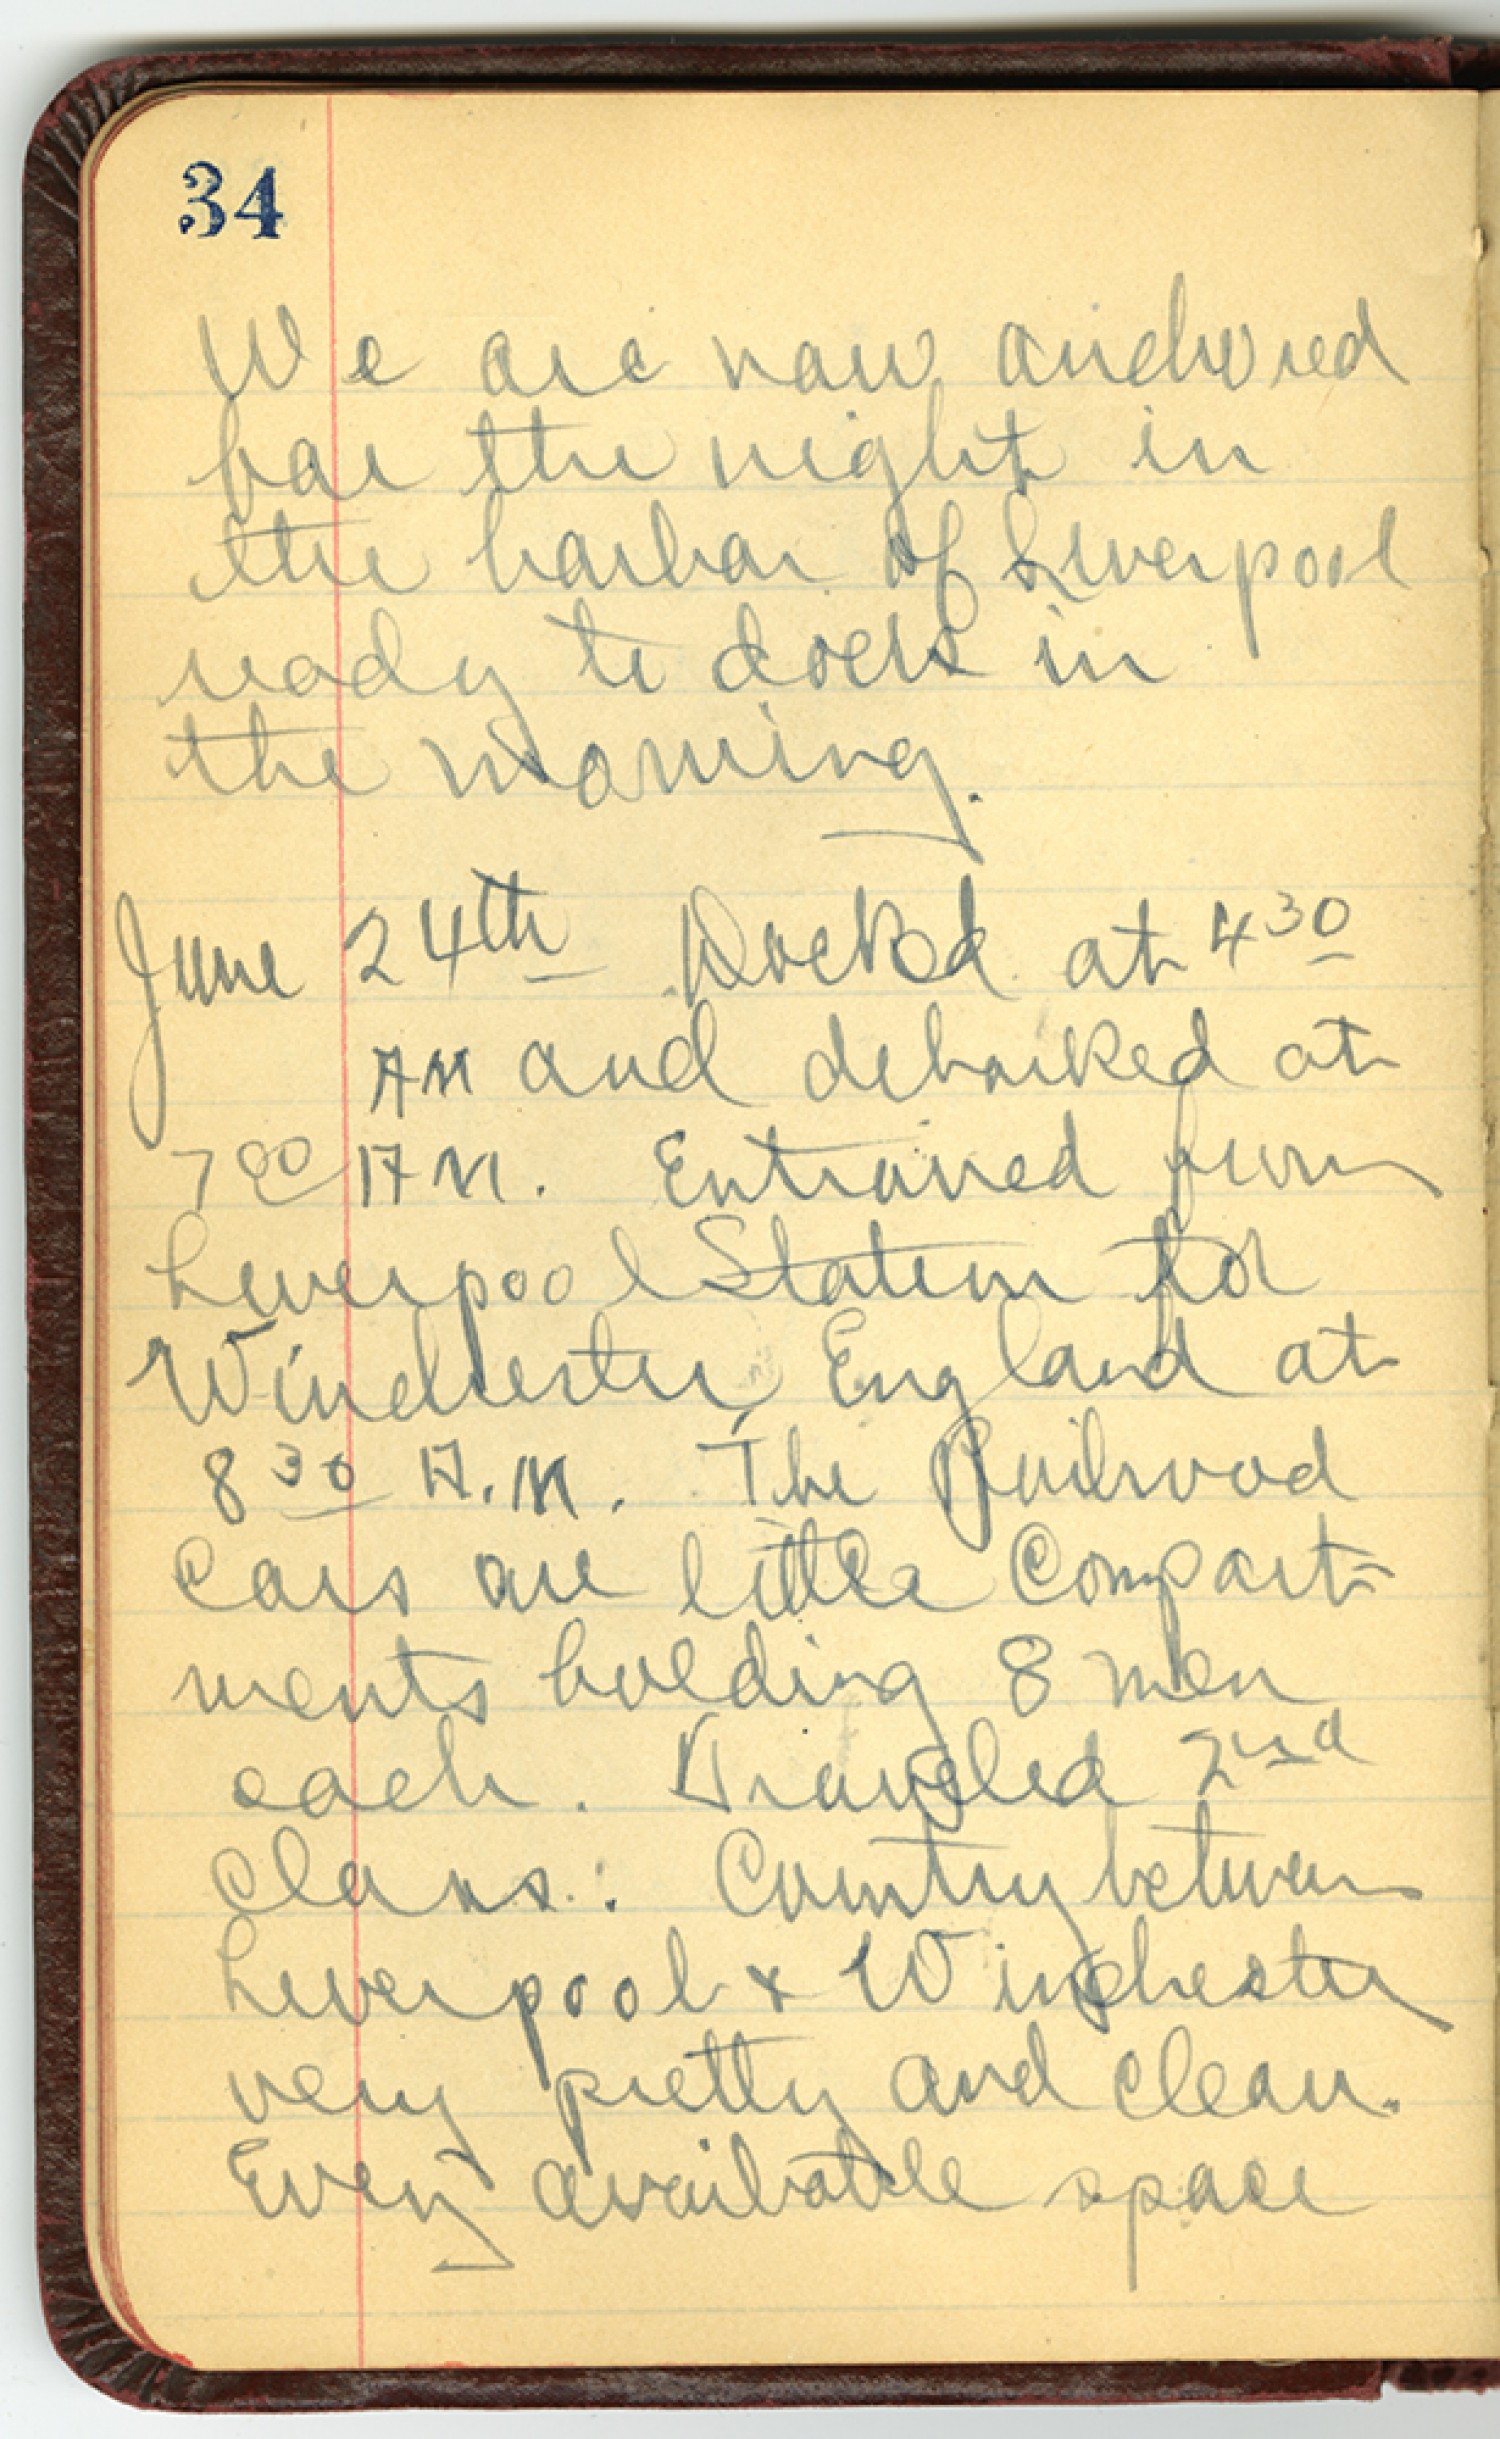 34
We are now anchored
for the night in
the harbor of Liverpool
ready to dock in
the morning.
June 24th Docked at 4 30
AM and debarked at
7 00 AM. Entrained from
Liverpool Station for
Winchester England at
8 30 A.M. The Railroad
Cars are little Compart-
ments holding 8 men
each. Traveled 2nd
Class. Country between
Liverpool & Winchester
very pretty and clean.
Every available space